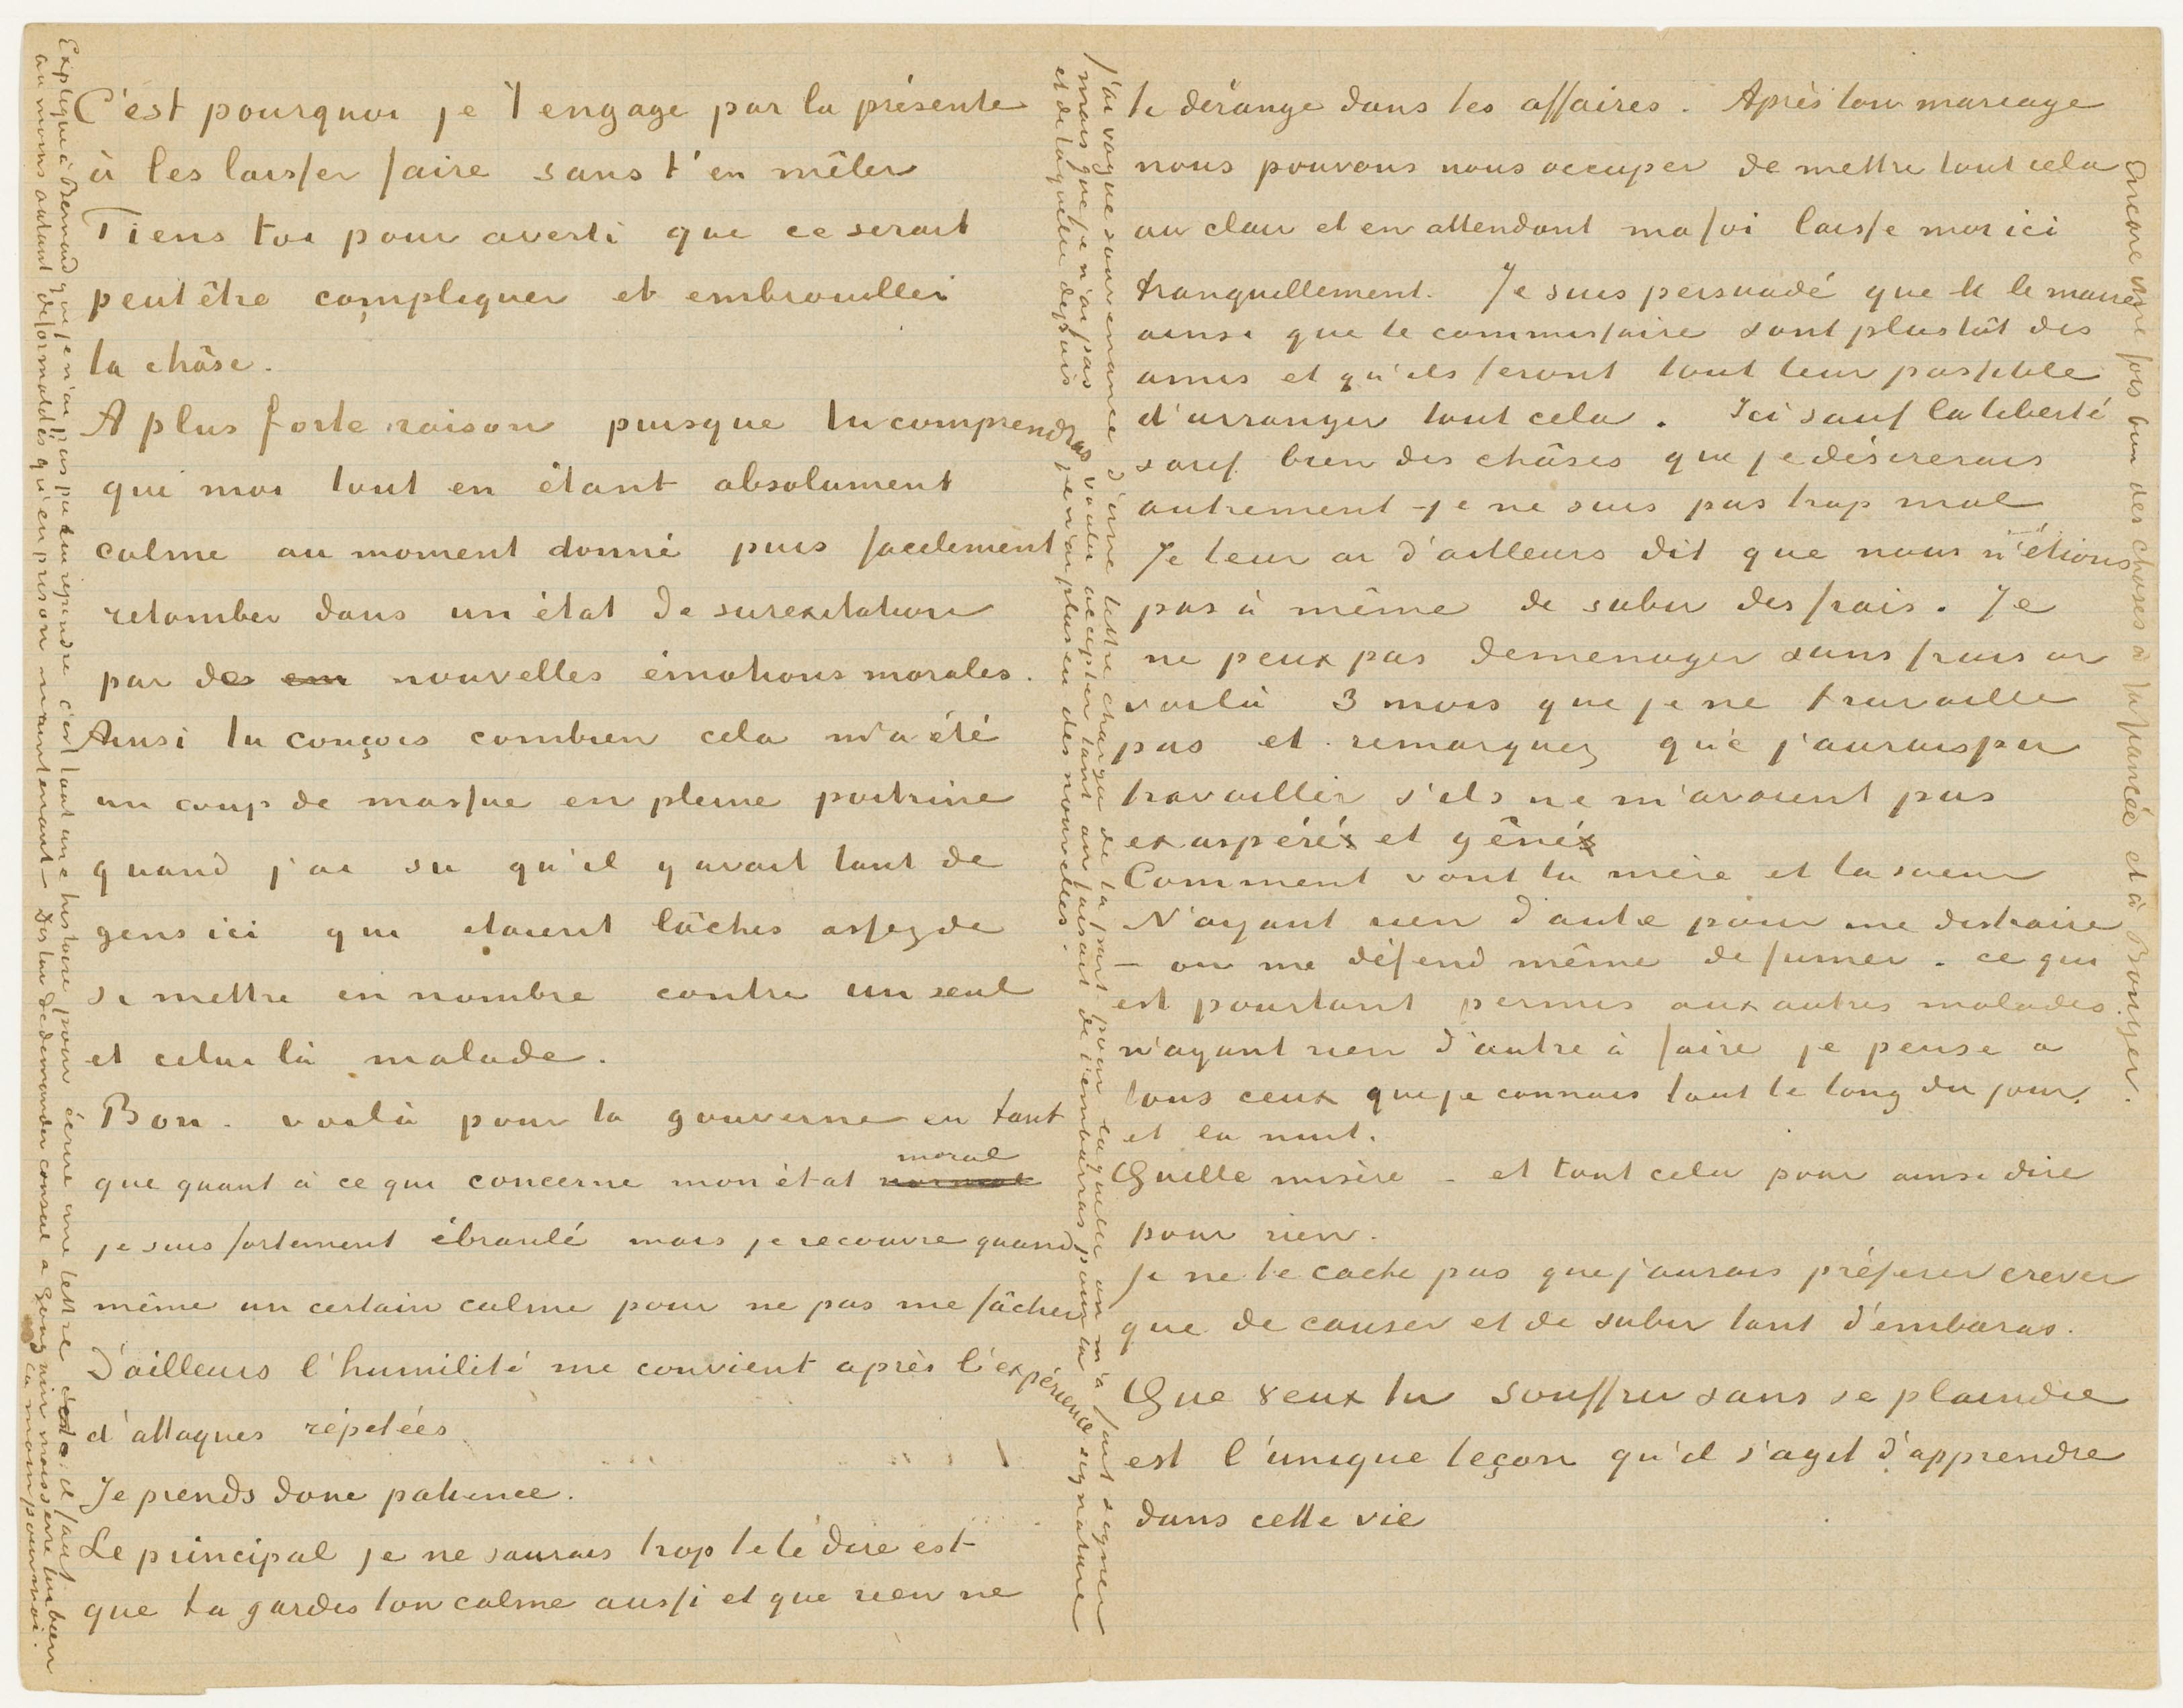 C'est pourquoi je t'engage par la présente
à les laisser faire sans t'en mêler
Tiens toi pour averti que ce serait
peutêtre compliquer et embrouiller
la chôse.
A plus forte raison puisque tu comprendras
que moi tout en étant absolument
calme au moment donné puis facilement
retomber dans un état de surexitation
par des em nouvelles émotions morales.
Ainsi tu conçois combien cela m'a été
un coup de massue en pleine poitrine
quand j'ai su qu'il y avait tant de
gens ici qui etaient lâches assez de
se mettre en nombre contre un seul
et celui là malade.
Bon. voilà pour ta gouverne en tant
moral
que quant à ce qui concerne mon état normal
je suis fortement ébranlé mais je recouvre quand
même un certain calme pour ne pas me fâcher
D'ailleurs l'humilité me convient après l'expérience
d'attaques répetées
Je prends donc patience.
Le principal je ne saurais trop te le dire est
que tu gardes ton calme aussi et que rien ne
te dérange dans tes affaires. Après ton mariage
nous pouvons nous occuper de mettre tout cela
au clair et en attendant ma foi laisse moi ici
tranquillement. Je suis persuadé que le maire
ainsi que le commissaire sont plustôt des
amis et qu'ils feront tout leur possible
d'arranger tout cela. Ici sauf la liberté
sauf bien des chôses que je désirerais
autrement je ne suis pas trop mal
Je leur ai d'ailleurs dit que nous n'étions
pas à même de subir des frais. Je
ne peux pas demenager sans frais or
voilà 3 mois que je ne travaille
pas et remarquez que j'aurais pu
travailler s'ils ne m'avaient pas
exaspéré et gêné
Comment vont la mère et la soeur
N'ayant rien d'autre pour me distraire
– on me défend même de fumer – ce qui
est pourtant permis aux autres malades
n'ayant rien d'autre à faire je pense a
tous ceux que je connais tout le long du jour
et la nuit.
Quelle misère – et tout cela pour ainsi dire
pour rien.
Je ne te cache pas que j'aurais préferer crever
que de causer et de subir tant d'embaras.
Que veux tu souffrir sans se plaindre
est l'unique leçon qu'il s'agit d'apprendre
dans cette vie
Explique à Bernard que je n'ai pas pu lui répondre c'est tout une histoire pour écrire une lettre il faut
au moins autant de formalités qu'en prison maintenant – Dis lui de demander conseil a Gauguin mais serre lui bien
la main pour moi.
J'ai vague souvenance d'une lettre chargée de ta part pour laquelle on m'a fait signer
mais que je n'ai pas voulu accepter tant on faisait de l'embarras pour la signature
et de laquelle depuis je n'ai plus eu des nouvelles.
Encore une fois bien des choses à ta fiancée et à Bonger.